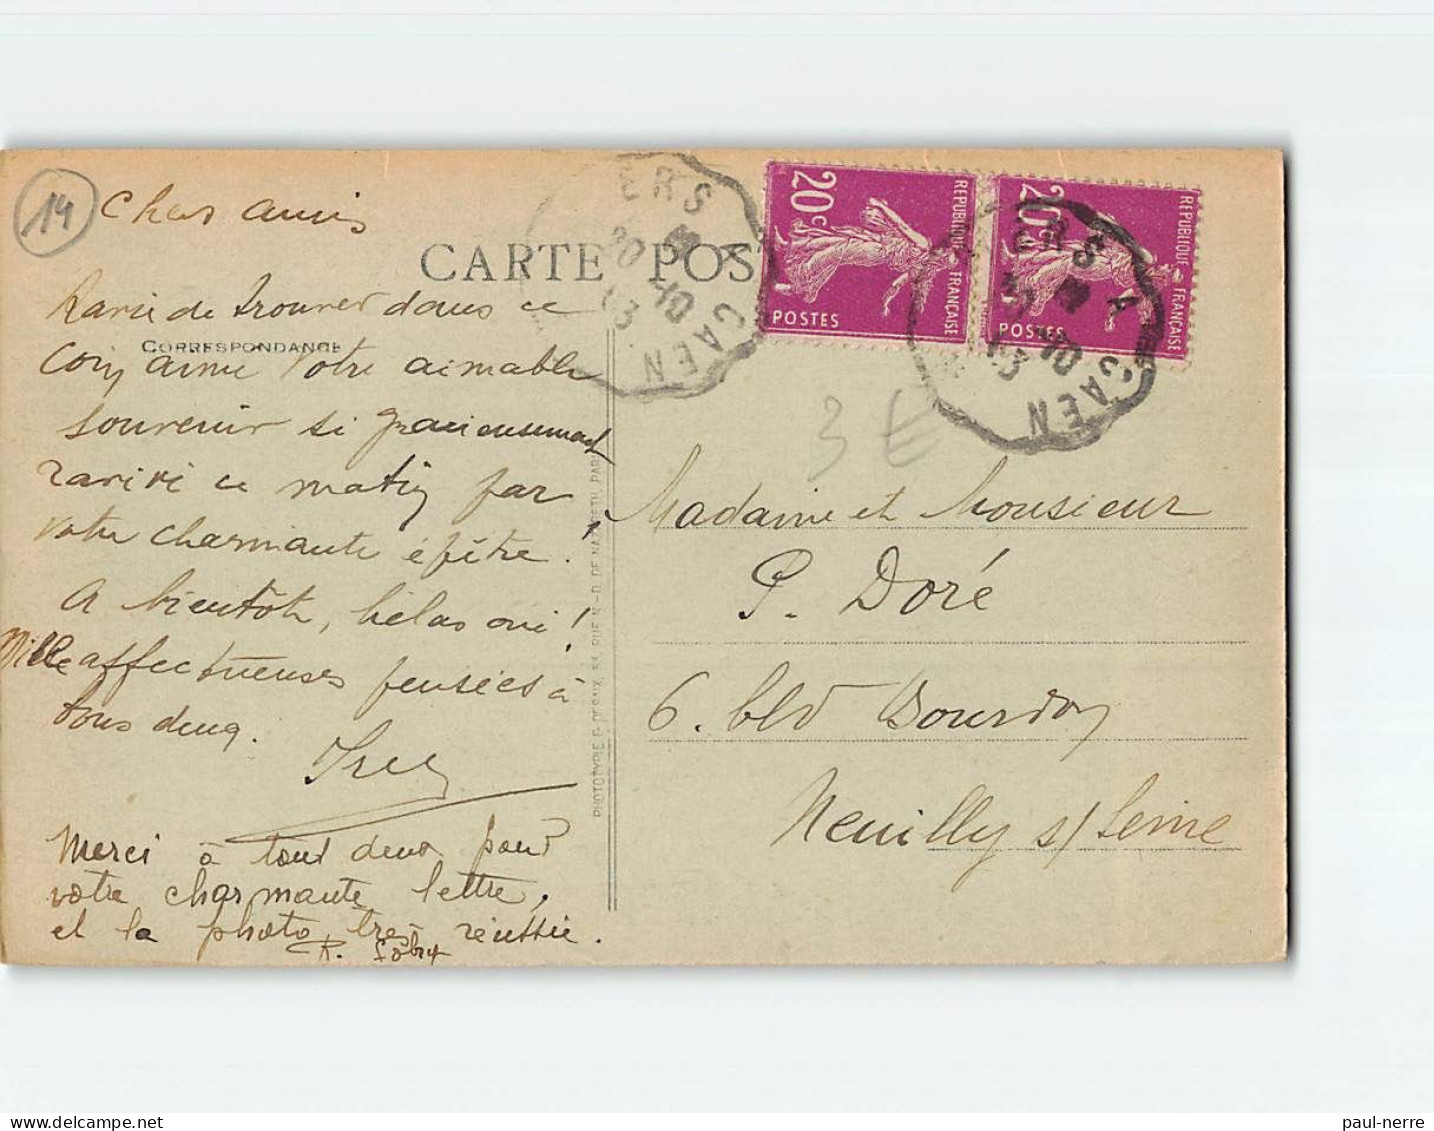 14
Chers amis
CARTE POS
Ravie de trouver dans ce
CORRESPONDANCE
coin aimé votre aimable
souvenir si gracieusement
ravivé ce matin par
votre charmante épître.
A bientôt, hélas oui !
Mille affectueuses pensées à
tous deux.
Merci à tous deux pour
votre charmante lettre,
et la photo très réussie.
R.
PHOTOTYPIE E. DESAIX, RUE N.-D. DE NAZARETH, PARIS
ERS A CAEN
30 -10
20c
REPUBLIQUE FRANÇAISE
POSTES
20c
REPUBLIQUE FRANÇAISE
POSTES
ERS A CAEN
-10
3 €
Madame et Monsieur
P. Doré
6. bld Bourdon
Neuilly s/ Seine
paul-nerre